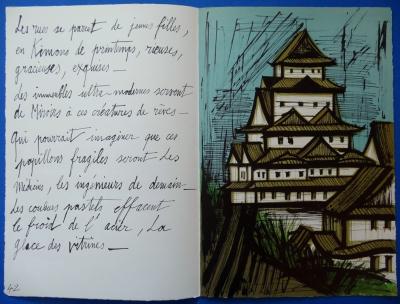 Les rues se parent de jeunes filles,
en Kimono de printemps, rieuses,
gracieuses, exquises —
Les immeubles ultra-modernes servent
de Miroirs à ces créatures de rêves —
Qui pourrait imaginer que ces
papillons fragiles seront les
médecins, les ingénieurs de demain —
Les couleurs pastels effacent
le froid de l'acier, La
glace des vitrines —
42